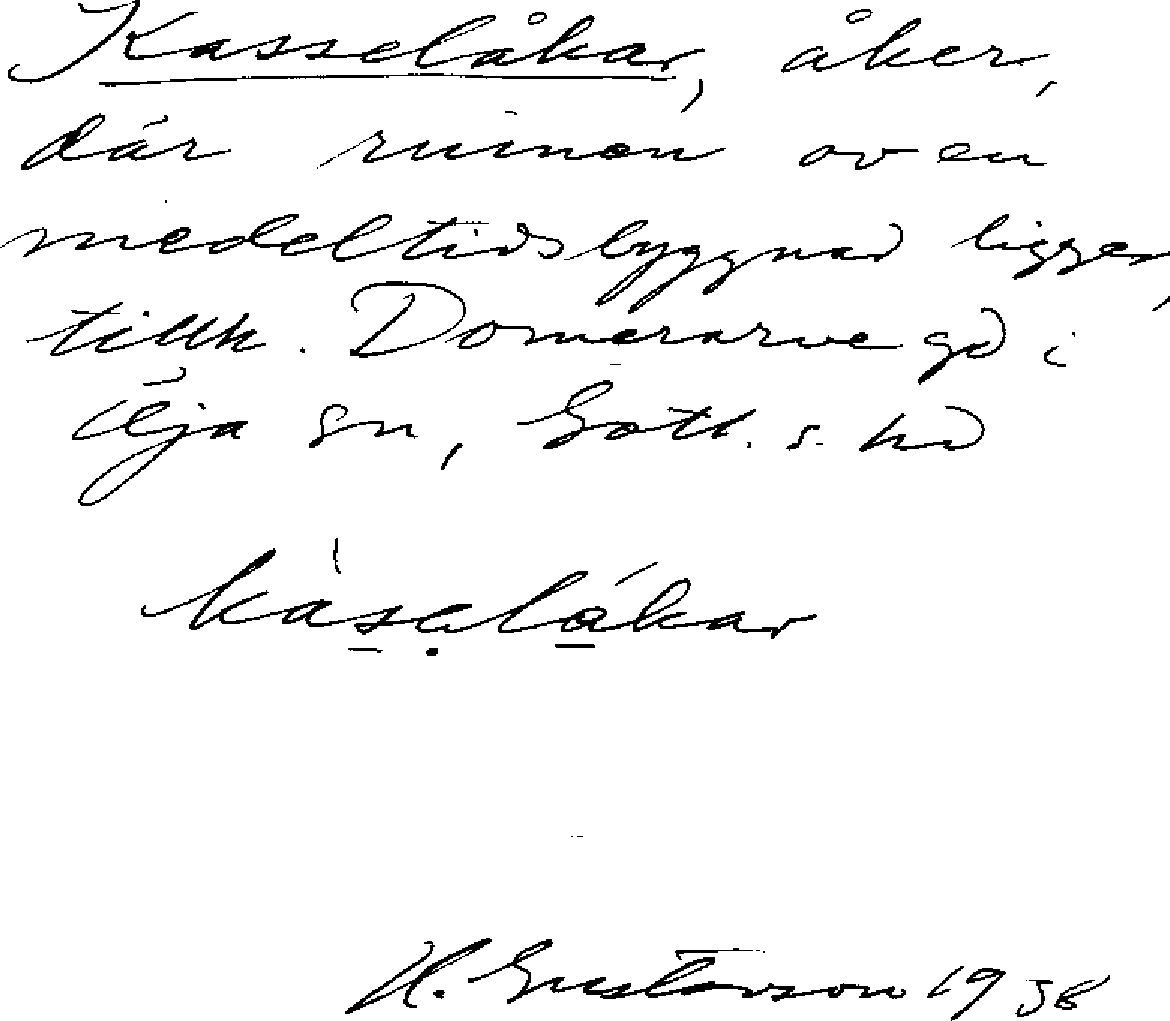 Kasselåkar, åker,
där ruinen av en
medeltidsbyggnad ligger,
tillh. Domerarve gd i
Öja sn, Gotl. s. hd
kàsạlákar
H. Gustavson 1938